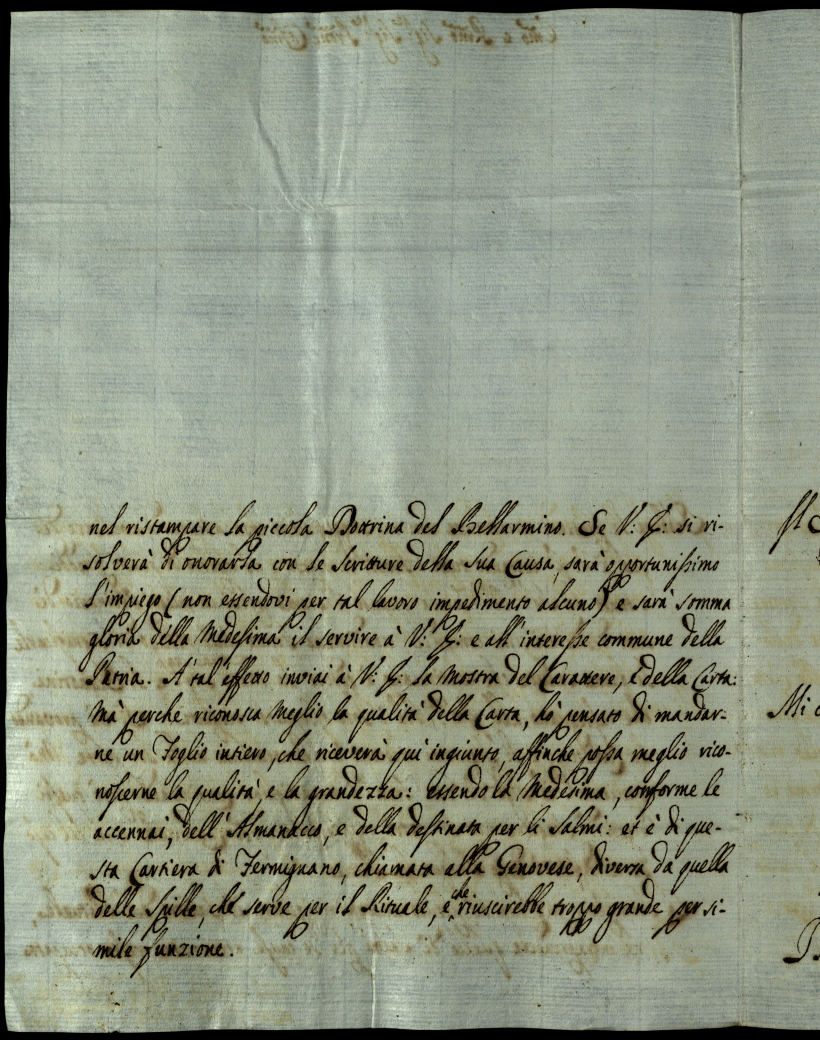 nel ristampare la piccola Dottrina del Bellarmino. Se V: S: si ri-
solverà di onorarla con le Scritture della sua Causa, sarà opportunissimo
l'impiego (non essendovi per tal lavoro impedimento alcuno) e sarà somma
gloria della Medesima il servire à V: S: e all'interesse commune della
Patria. A' tal'effetto inviai à V: S: la Mostra del Carattere, e della Carta:
Mà perche riconosca meglio la qualità della Carta, hò pensato di mandar-
ne un Foglio intiero, che riceverà quì ingiunto, affinche possa meglio rico-
noscerne la qualità, e la grandezza: essendo la Medesima, conforme le
accennai, dell'Almanacco, e della destinata per li Salmi: et è di que-
sta Cartiera di Fermignano, chiamata alla Genovese, diversa da quella
delle Spille, che serve per il Rituale, e che riuscirebbe troppo grande per si-
mile funzione.
Mi